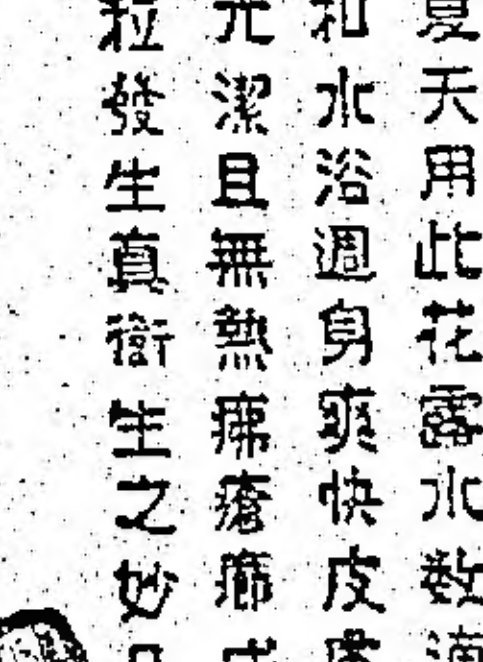 夏天用此花露水数滴
和水浴週身爽快皮膚
光潔且無熱痱瘡癤或
粒發生真衛生之妙品